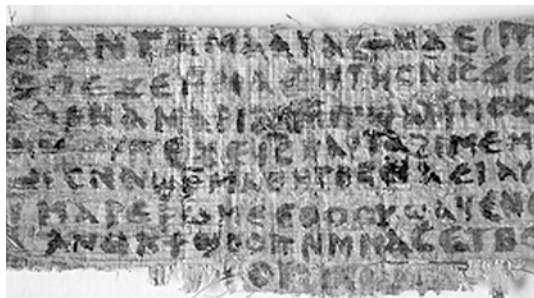 ⲉⲓ ⲁⲛ ⲧⲁⲙⲁⲁⲩ ⲁⲥϯ ⲛⲁⲉⲓ
ⲡⲉϫⲉ ⲙⲙⲁⲑⲏⲧⲏⲥ ⲛⲓⲥ ϫⲉ
ⲁⲣⲛⲁ ⲙⲁⲣⲓⲁⲙ
ⲡⲉϫⲉ ⲓⲥ ⲛⲁⲩ ⲧⲁϩⲓⲙⲉ ⲙ
ⲥⲛⲁϣⲣⲙⲁⲑⲏⲧⲏⲥ ⲛⲁⲉⲓ ⲁⲩ
ⲙⲁⲣⲉⲣⲱⲙⲉ ⲉⲑⲟⲟⲩ ϣⲁϥⲉ ⲛⲉ
ⲁⲛⲟⲕ ϯϣⲟⲟⲡ ⲛⲙⲙⲁⲥ ⲉⲧⲃⲉ